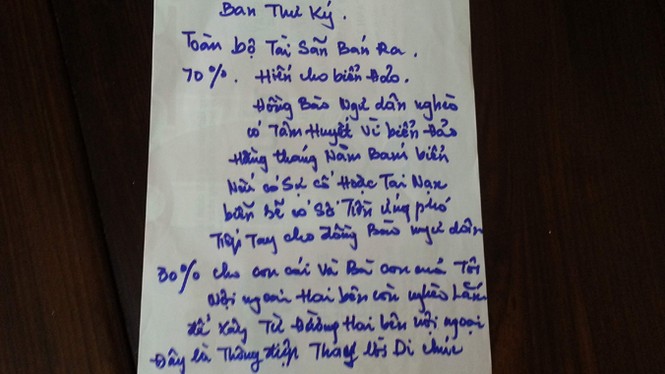 Ban Thư Ký.
Toàn bộ Tài Sản Bán Ra.
70%. Hiến cho biển Đảo.
Đồng Bào Ngư dân nghèo
có Tâm Huyết Vì biển Đảo
Hằng tháng Năm Bám biển
Nếu có Sự cố Hoặc Tai Nạn
biển Sẽ có Số Tiền Ứng phó
Tiếp Tay cho Đồng Bào ngư dân
30% cho con cái Và Bà con của Tôi
Nội ngoại Hai bên còn nghèo Lắm
để Xây Từ Đường Hai bên nội ngoại
Đây là Thông điệp Thay lời Di chúc